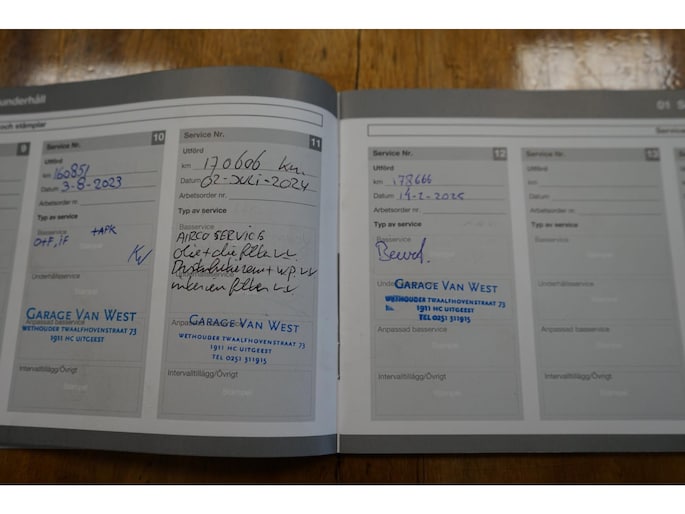 underhåll
och stämplar
9
Service Nr.
10
Utförd
km 160851
Datum 3-8-2023
Arbetsorder nr.
Typ av service
Basservice
+APK
O+F, iF
Stämpel
Underhållsservice
GARAGE VAN WEST
Anpassad basservice
WETHOUDER TWAALFHOVENSTRAAT 73
1911 HC UITGEEST
Intervalltillägg/Övrigt
Stämpel
Service Nr.
11
Utförd
km 170606 km
Datum 02-JULI-2024
Arbetsorder nr.
Typ av service
Basservice
AIRCO SERVICE
olie +
Distributieriem + wp
Underhållsservice
interieurfilter
Anpassad basservice
GARAGE VAN WEST
WETHOUDER TWAALFHOVENSTRAAT 73
1911 HC UITGEEST
TEL 0251 311915
Intervalltillägg/Övrigt
Stämpel
01
Service
Service Nr.
12
Utförd
km 178666
Datum
Arbetsorder nr.
Typ av service
Basservice
GARAGE VAN WEST
WETHOUDER TWAALFHOVENSTRAAT 73
1911 HC UITGEEST
TEL 0251 311915
Anpassad basservice
Intervalltillägg/Övrigt
Stämpel
Service Nr.
13
Utförd
km
Datum
Arbetsorder nr.
Typ av service
Basservice
Stämpel
Underhållsservice
Stämpel
Anpassad basservice
Stämpel
Intervalltillägg/Övrigt
Stämpel